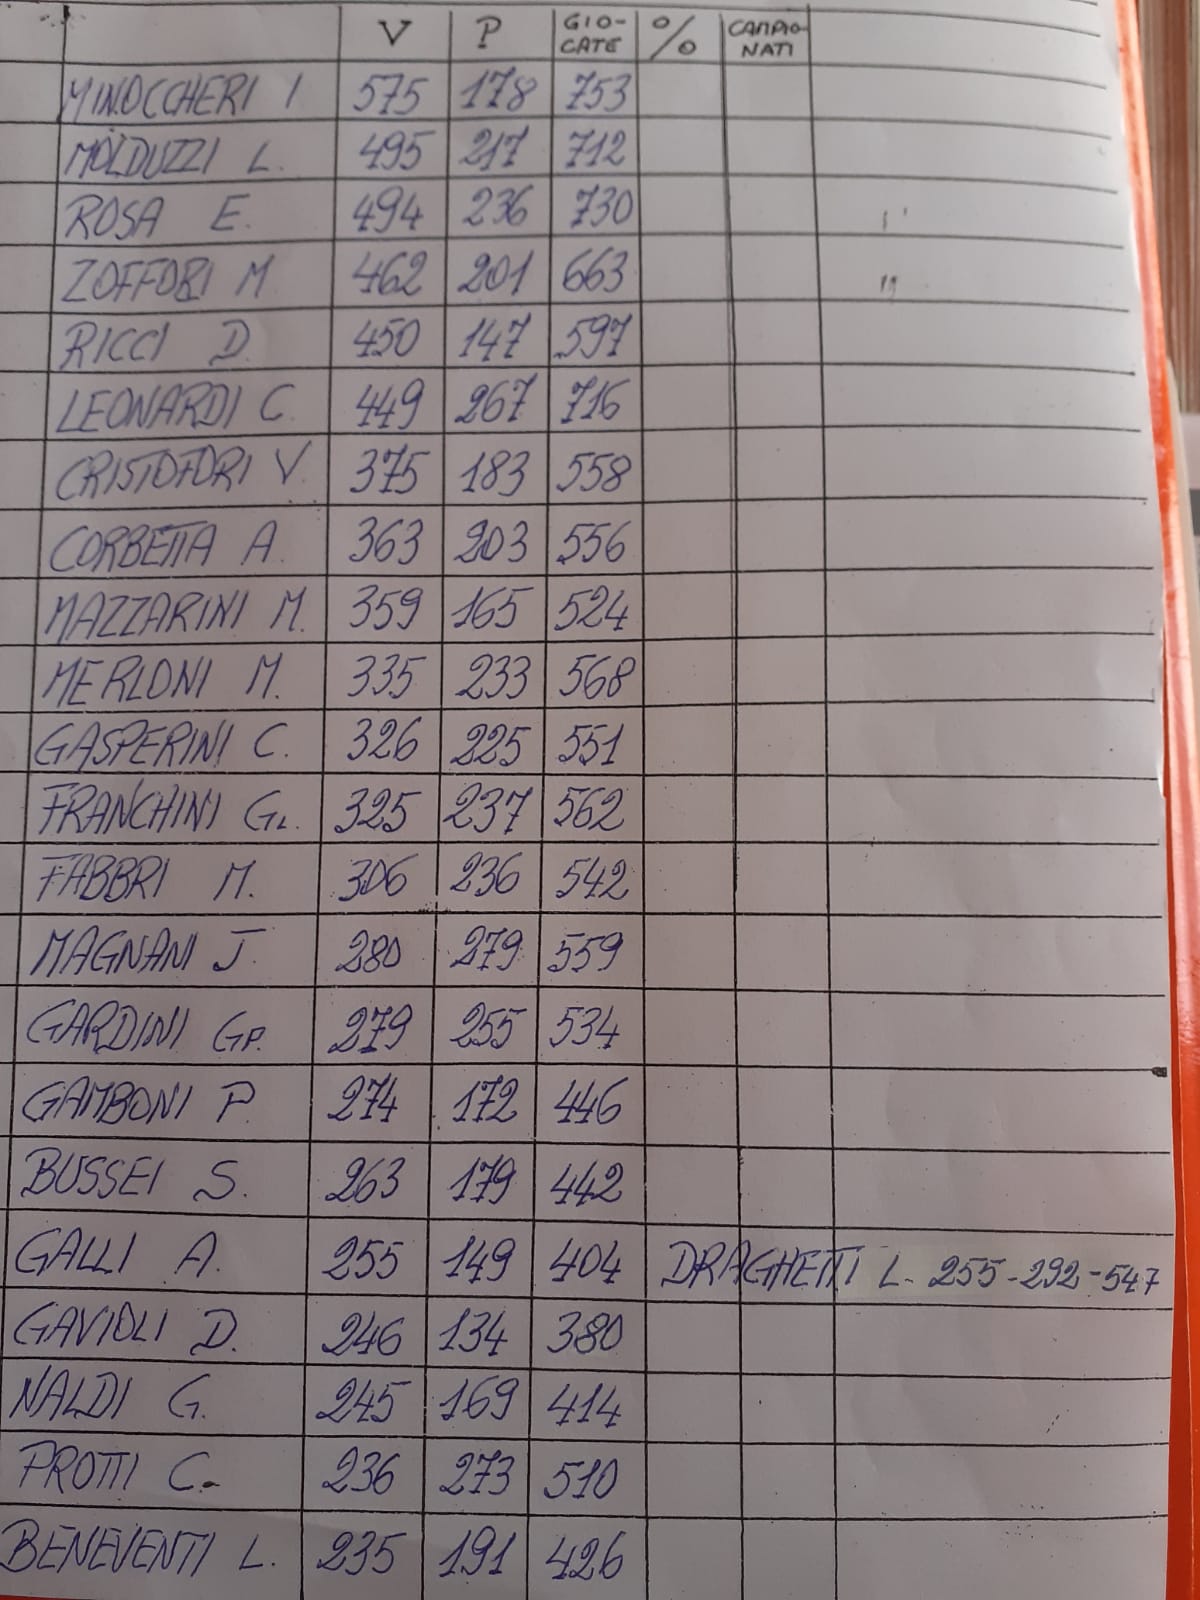 V P GIO-CATE % CAMPIO-NATI
MINOCCHERI I 575 178 753
MOLDUZZI L. 495 217 712
ROSA E. 494 236 730
ZOFFORI M 462 201 663
RICCI D. 450 147 597
LEONARDI C. 449 267 716
CRISTOFORI V. 375 183 558
CORBETTA A. 363 203 556
MAZZARINI M. 359 165 524
MERLONI M. 335 233 568
GASPERINI C. 326 225 551
FRANCHINI GL. 325 237 562
FABBRI M. 306 236 542
MAGNANI J. 280 279 559
GARDINI GP. 279 255 534
GAMBONI P. 274 172 446
BUSSEI S. 263 179 442
GALLI A. 255 149 404 DRAGHETTI L. 255-292-547
GAVIOLI D. 246 134 380
NALDI G. 245 169 414
PROTTI C. 236 273 510
BENEVENTI L. 235 191 426